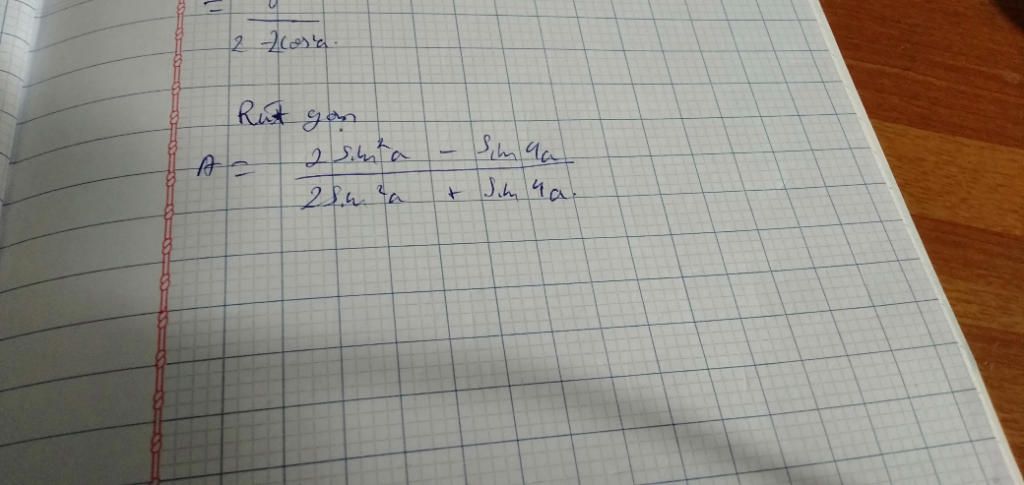 =
2 - 2cos²a.
Rút gọn
A = 2 Sin²a - Sin 4a
2 Sin ²a + Sin 4a.